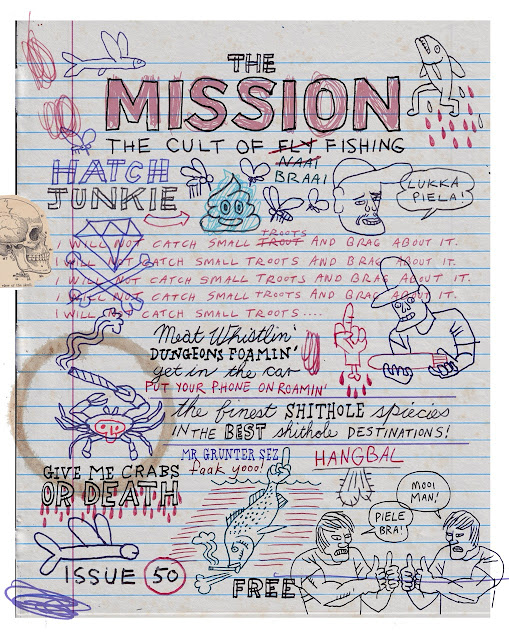 THE
MISSION
THE CULT OF FLY FISHING
NAAI
BRAAI
HATCH
JUNKIE
LUKKA
PIELA!
TROOTS
I WILL NOT CATCH SMALL TROUT AND BRAG ABOUT IT.
I WILL NOT CATCH SMALL TROOTS AND BRAG ABOUT IT.
I WILL NOT CATCH SMALL TROOTS AND BRAG ABOUT IT.
I WILL NOT CATCH SMALL TROOTS AND BRAG ABOUT IT.
I WILL NOT CATCH SMALL TROOTS....
Meat Whistlin'
DUNGEONS FOAMIN'
get in the car
PUT YOUR PHONE ON ROAMIN'
the finest SHITHOLE spiecies
IN THE BEST shithole DESTINATIONS!
MR GRUNTER SEZ
faak yooo!
HANGBAL
GIVE ME CRABS
OR DEATH
MOOI
MAN!
PIELE
BRA!
ISSUE 50
FREE